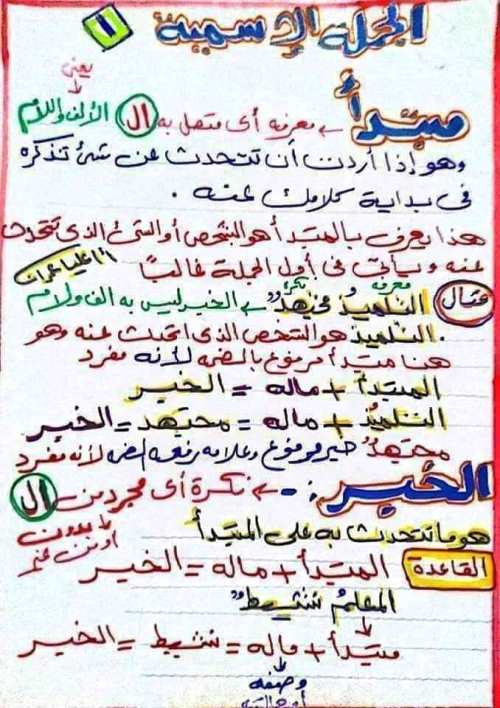 ١ الجملة الإسمية
يعنى
مبتدأ ← معرفه أى متصل به ال الألف واللام
وهو إذا أردت أن تتحدث عن شئ تذكره
فى بداية كلامك عنه .
هذا يعرف بالمبتدأ هو الشخص أو الشئ الذى تتحدث
عنه ويأتى فى أول الجملة غالباً
معرفة نكرة
مثال التلميذُ مجتهدٌ ← الخبر ليس به الف ولام
. التلميذ هو الشخص الذى اتحدث عنه وهو
هنا مبتدأ مرفوع بالضمه لأنه مفرد
المبتدأ + ماله = الخبر
التلميذُ + ماله = مجتهد = الخبر
مجتهدٌ خبر مرفوع وعلامه رفعه الضمه لأنه مفرد
الخبر :- ← نكرة أى مجرد من ال
بدون
هو ماتتحدث به على المبتدأ
أو من غير
القاعدة المبتدأ + ماله = الخبر
المعلمُ نشيطٌ
مبتدأ + ماله = نشيط = الخبر
وصفه